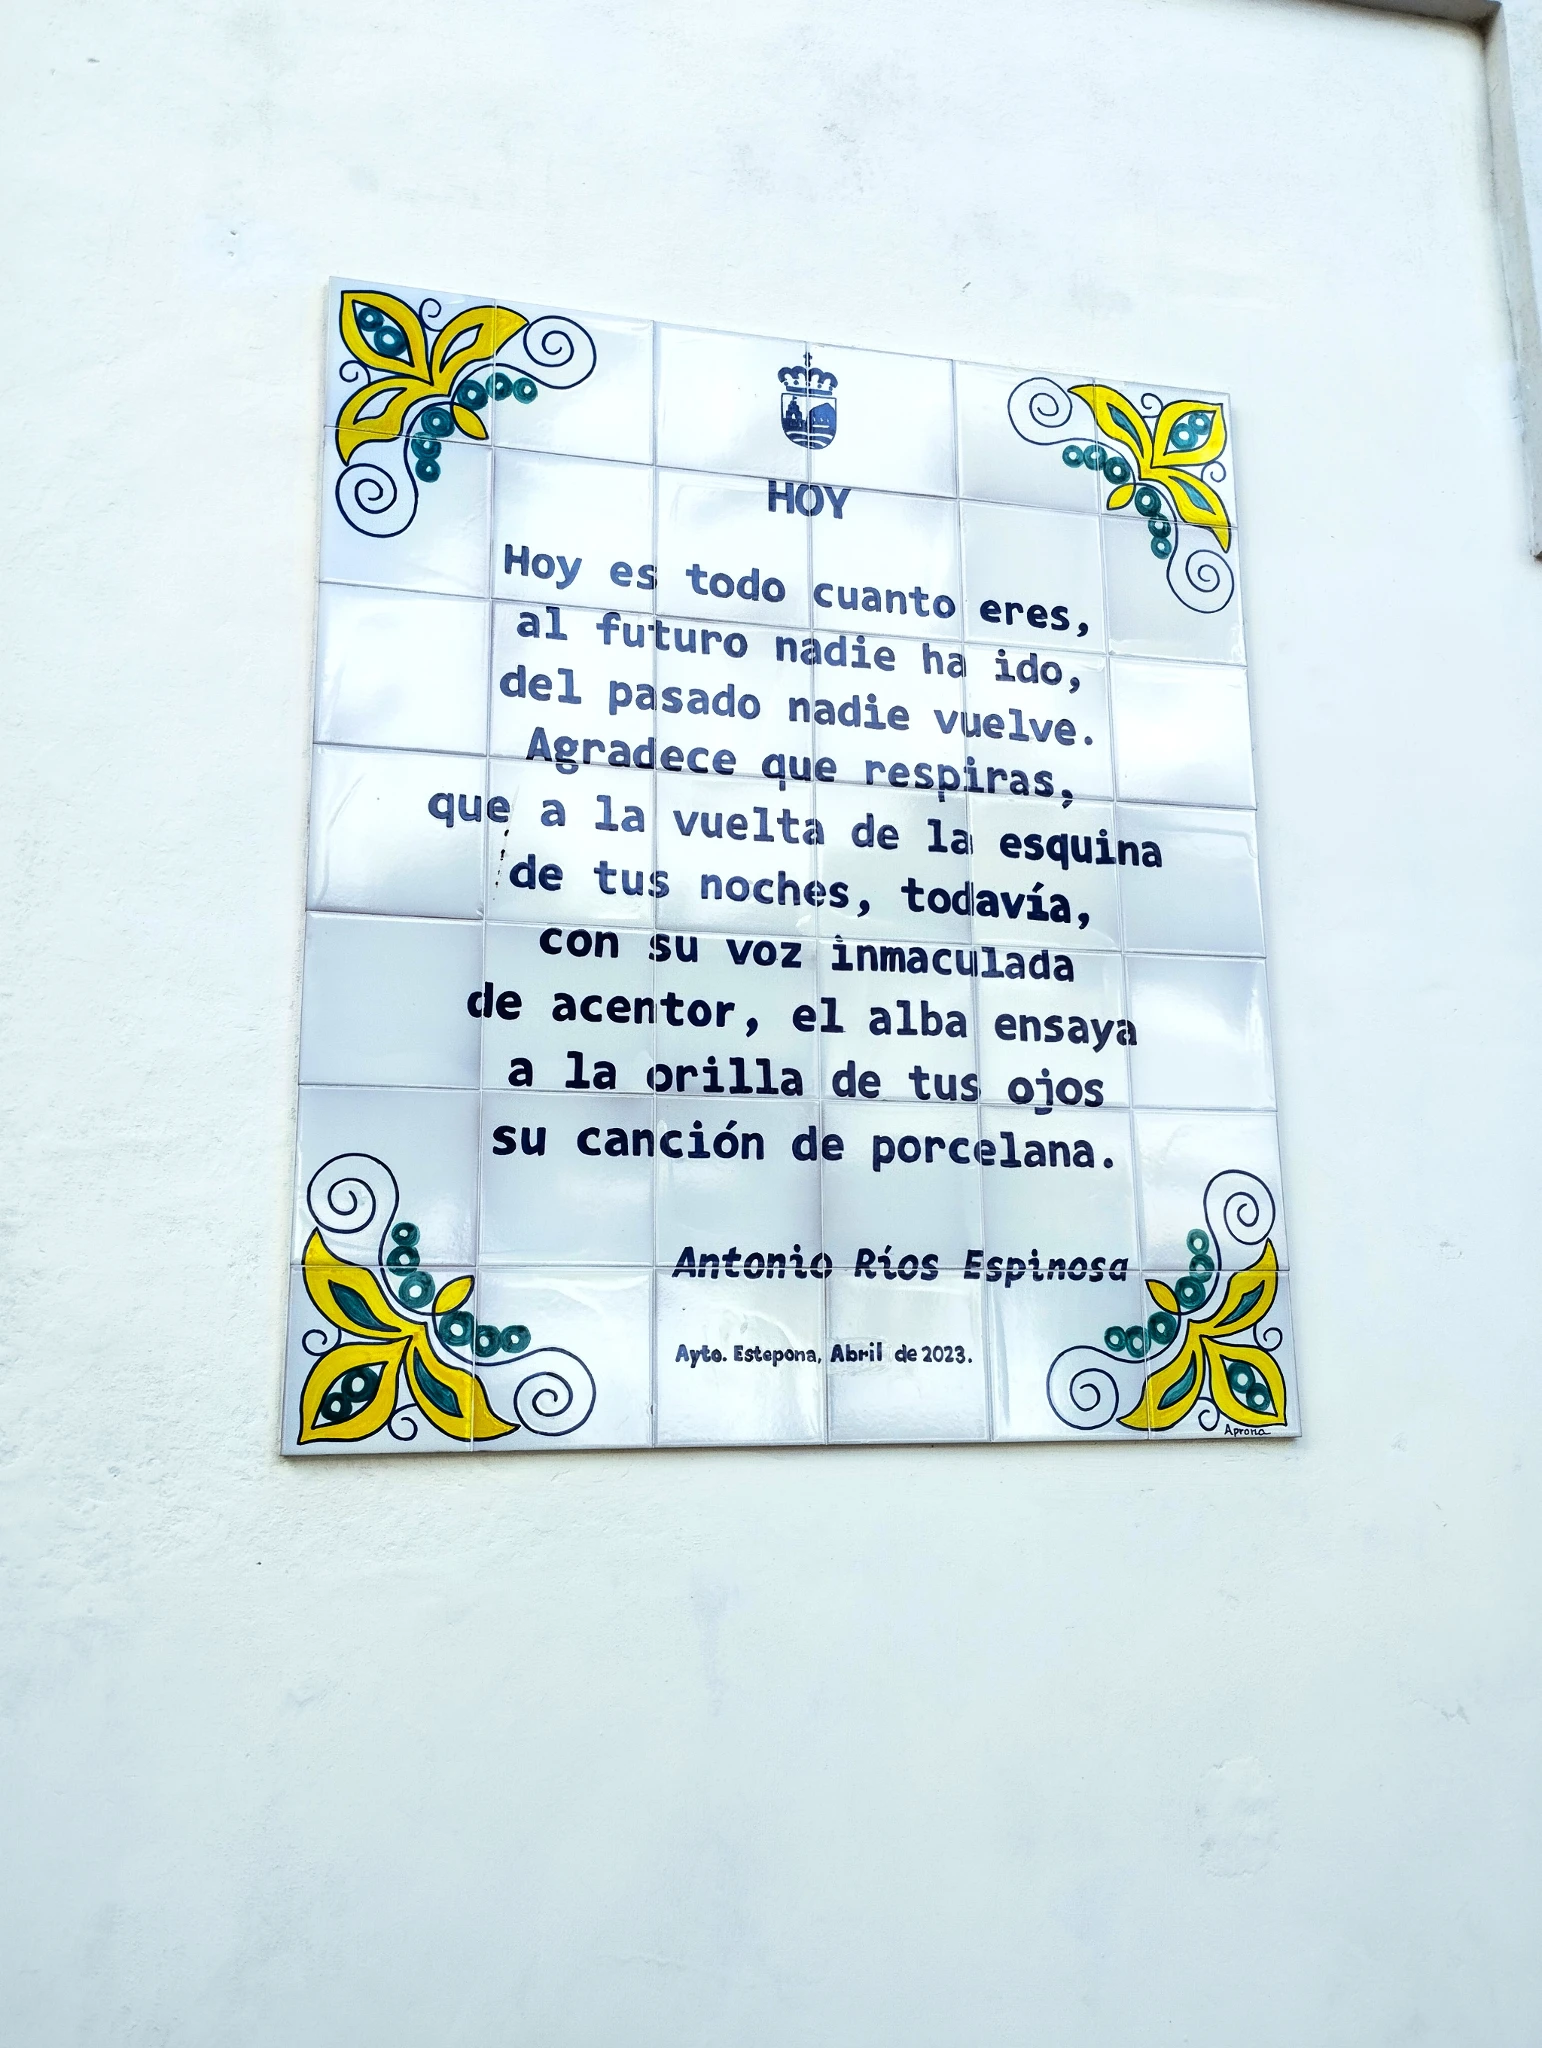 HOY
Hoy es todo cuanto eres,
al futuro nadie ha ido,
del pasado nadie vuelve.
Agradece que respiras,
que a la vuelta de la esquina
de tus noches, todavía,
con su voz inmaculada
de acentor, el alba ensaya
a la orilla de tus ojos
su canción de porcelana.
Antonio Ríos Espinosa
Ayto. Estepona, Abril de 2023.